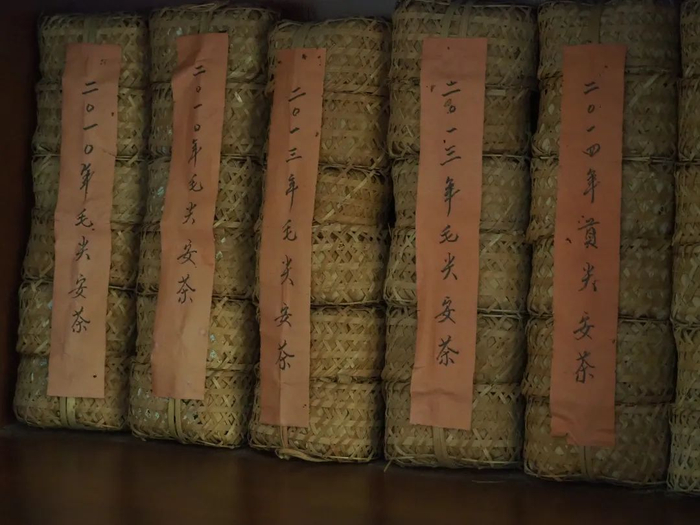 二〇一〇年毛尖安茶
二〇一〇年毛尖安茶
二〇一三年毛尖安茶
二〇一三年毛尖安茶
二〇一四年貢尖安茶